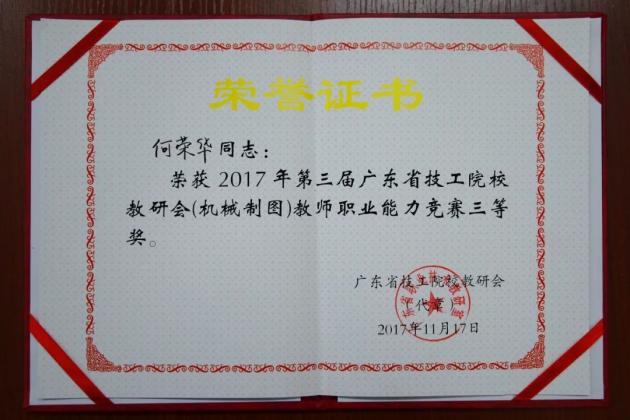 荣誉证书
何荣华同志：
荣获 2017 年第三届广东省技工院校
教研会(机械制图)教师职业能力竞赛三等
奖。
广东省技工院校教研会
（代章）
2017年11月17日